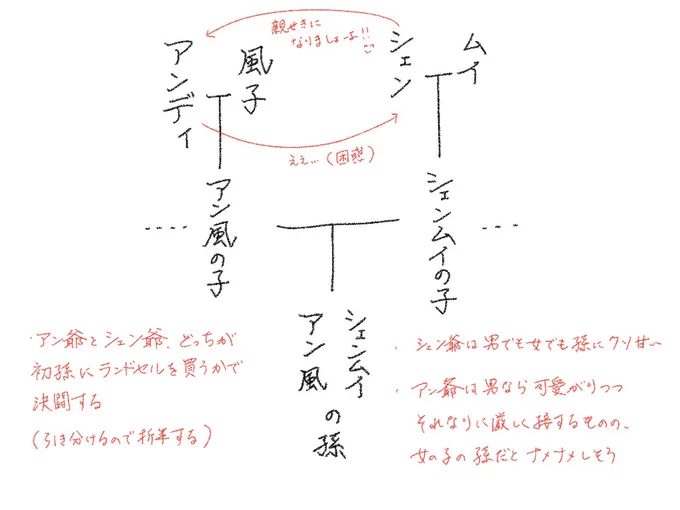 親せきに
なりましょーよ!!
アンディ
風子
シェン
ムイ
ええ…(困惑)
アン風の子
シェンムイの子
シェンムイ
アン風
の孫
・アン爺とシェン爺、どっちが
初孫にランドセルを買うかで
決闘する
(引き分けるので折半する)
・シェン爺は男でも女でも孫にクソ甘い
・アン爺は男なら可愛がりつつ
それなりに厳しく接するものの、
女の子の孫だとナメナメしそう